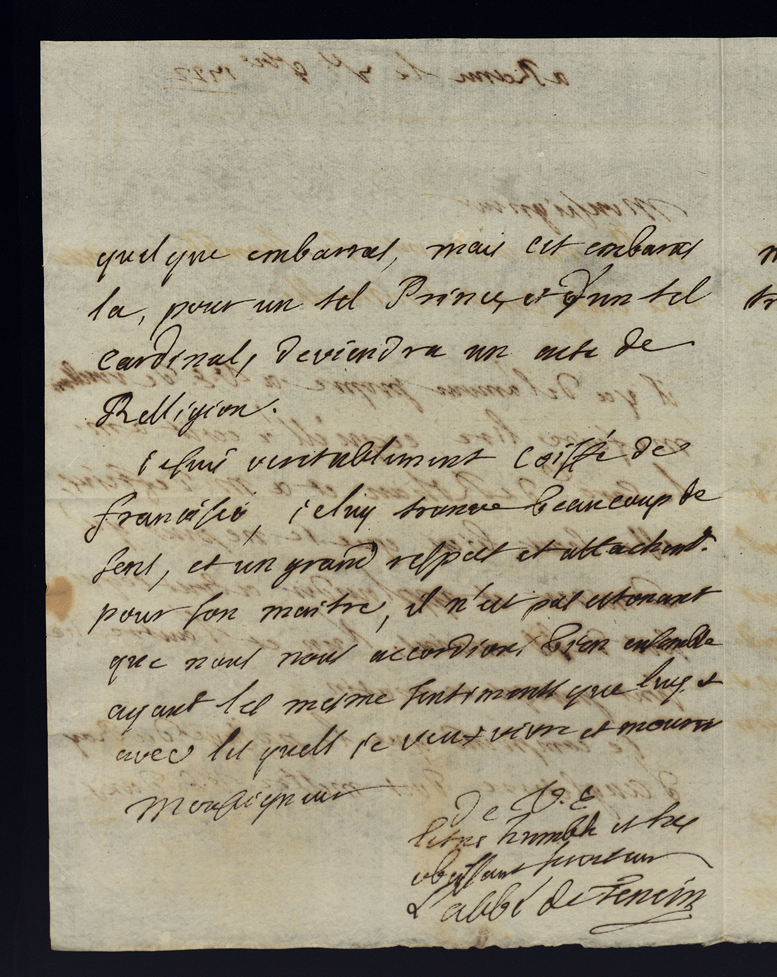 quelque embarras, mais cet embaras
la, pour un tel Prince, et d'un tel
Cardinal, deviendra un acte de
Relligion.
ie suis veritablement coiffé de
francisco, ie luy trouve beaucoup de
sens, et un grand respect et attachemt.
pour son maitre, il n'est pas etonant
que nous nous accordions bien ensemble
ayant les mesme sentiments que luy et
avec les quels ie veux vivre et mourir
Monseigneur
De V. E
le tres humble et tres
obeissant serviteur
L'abbé de Tencin